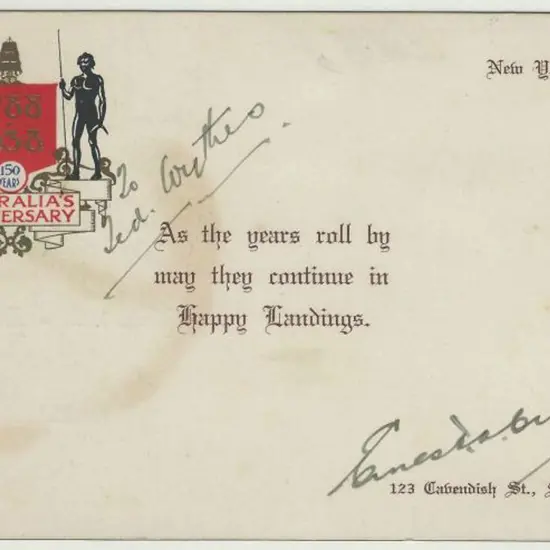 New Y
88
150
YEARS
RALIA'S
ERSARY
To
Ted. Wythes.
As the years roll by
may they continue in
Happy Landings.
123 Cavendish St.,